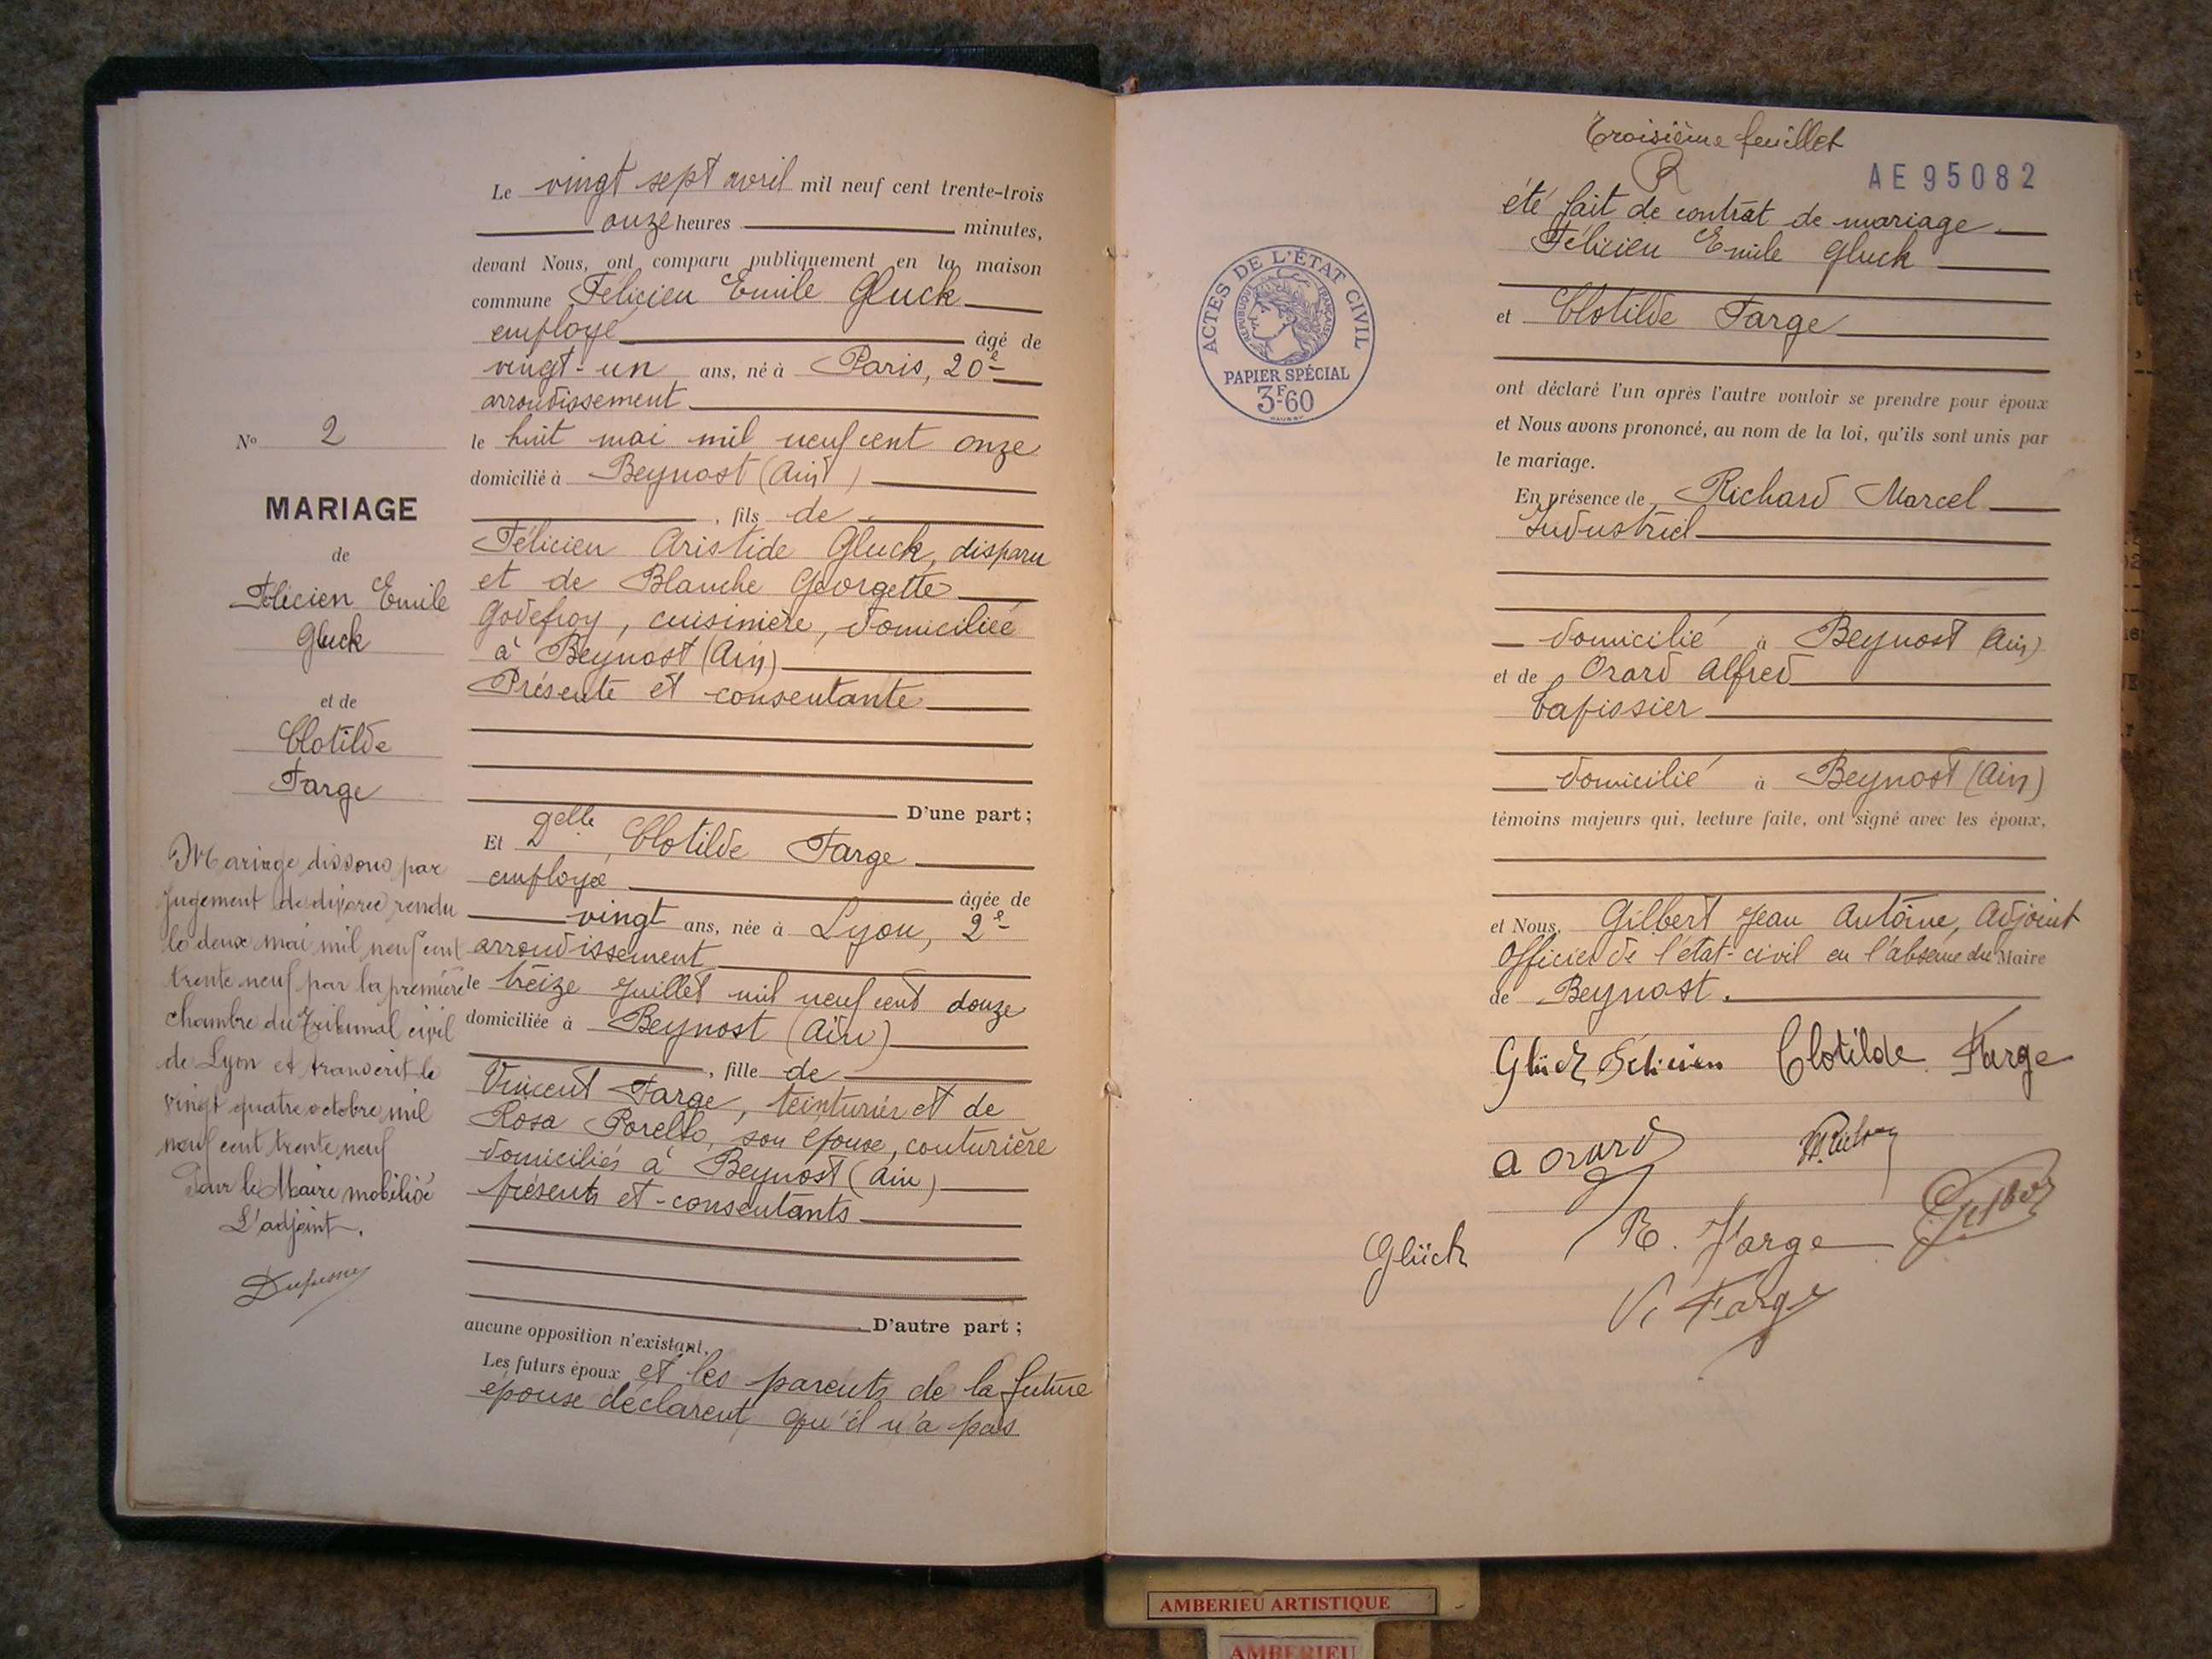 Le vingt sept avril mil neuf cent trente-trois
onze heures minutes,
devant Nous, ont comparu publiquement en la maison
commune Félicien Emile Gluck
employé âgé de
vingt-un ans, né à Paris, 20e
arrondissement
le huit mai mil neuf cent onze
domicilié à Beynost (Ain)
, fils de
Félicien Aristide Gluck, disparu
et de Blanche Georgette
Godefroy, cuisinière, domiciliée
à Beynost (Ain)
Présente et consentante
D'une part;
Et Delle Clotilde Farge
employée âgée de
vingt ans, née à Lyon, 2e
arrondissement
le treize juillet mil neuf cent douze
domiciliée à Beynost (Ain)
, fille de
Vincent Farge, teinturier et de
Rosa Porello, son épouse, couturière
domiciliés à Beynost (Ain)
présents et consentants
D'autre part;
aucune opposition n'existant.
Les futurs époux et les parents de la future
épouse déclarent qu'il n'a pas
No 2
MARIAGE
de
Félicien Emile
Gluck
et de
Clotilde
Farge
Mariage dissous par
jugement de divorce rendu
le deux mai mil neuf cent
trente neuf par la première
chambre du Tribunal civil
de Lyon et transcrit le
vingt quatre octobre mil
neuf cent trente neuf
Pour le Maire mobilisé
L'adjoint.
Troisième feuillet
R
AE 95082
été fait de contrat de mariage.
Félicien Emile Gluck
et Clotilde Farge
ont déclaré l'un après l'autre vouloir se prendre pour époux
et Nous avons prononcé, au nom de la loi, qu'ils sont unis par
le mariage.
En présence de Richard Marcel
Industriel
domicilié à Beynost (Ain)
et de Orard Alfred
Tapissier
domicilié à Beynost (Ain)
témoins majeurs qui, lecture faite, ont signé avec les époux,
et Nous, Gilbert Jean Antoine, Adjoint
Officier de l'état-civil en l'absence du Maire
de Beynost.
Glück Félicien Clotilde Farge
A Orard
R. Farge Gilbert
Glück
V. Farge
ACTES DE L'ÉTAT CIVIL
RÉPUBLIQUE FRANÇAISE
PAPIER SPÉCIAL
3F-60
AMBERIEU ARTISTIQUE
AMBERIEU